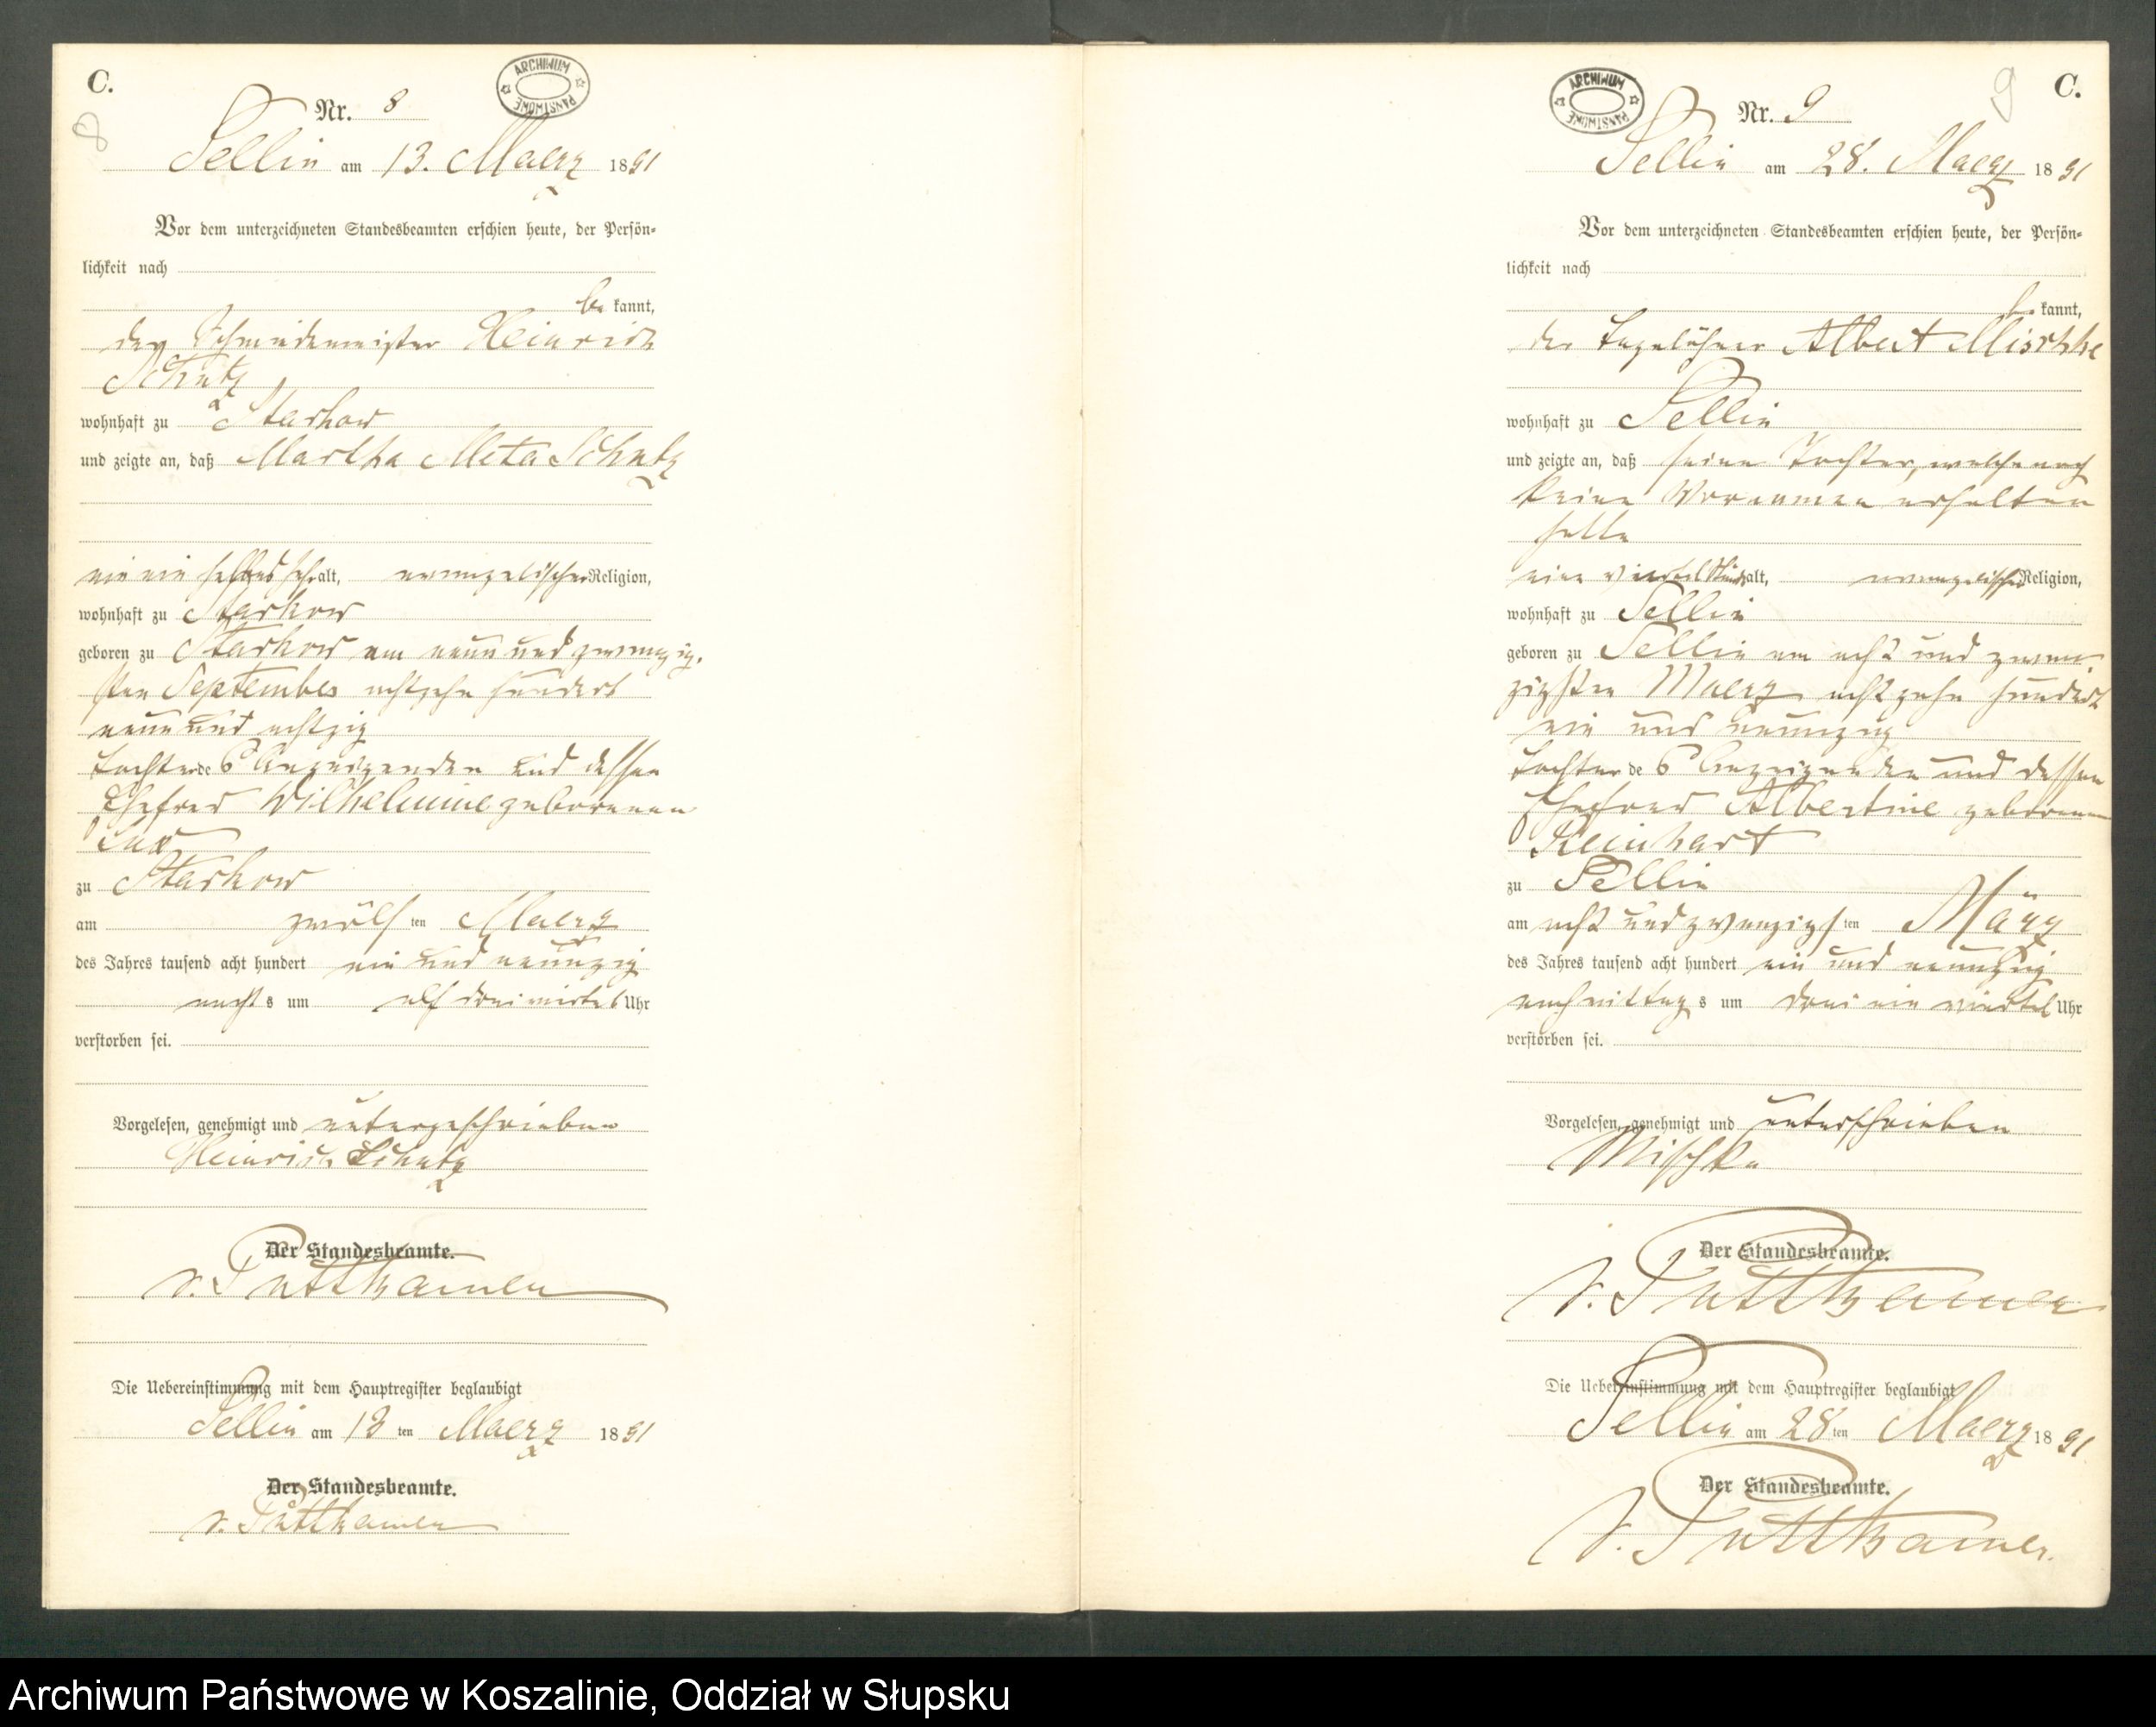 C.
8
ARCHIWUM PAŃSTWOWE
Nr. 8
Sellin am 13. Maerz 1891
Vor dem unterzeichneten Standesbeamten erschien heute, der Persön-
lichkeit nach
be kannt,
der Schmiedemeister Heinrich
Schutz
wohnhaft zu Starkow
und zeigte an, daß Martha Meta Schutz
ein ein halbes Jahr alt, evangelischer Religion,
wohnhaft zu Starkow
geboren zu Starkow am neun und zwanzig-
sten September achtzehn hundert
neun und achtzig
Tochter des Anzeigenden und dessen
Ehefrau Wilhelmine geborenen
zu Starkow
am zwölften Maerz
des Jahres tausend acht hundert ein und neunzig
nachts um elf dreiviertel Uhr
verstorben sei.
Vorgelesen, genehmigt und untergeschrieben
Heinrich Schutz
Der Standesbeamte.
v. Puttkamer
Die Uebereinstimmung mit dem Hauptregister beglaubigt
Sellin am 13ten Maerz 1891
Der Standesbeamte.
v. Puttkamer
C.
9
ARCHIWUM PAŃSTWOWE
Nr. 9
Sellin am 28. Maerz 1891
Vor dem unterzeichneten Standesbeamten erschien heute, der Persön-
lichkeit nach
be kannt,
der Tagelöhner Albert Mischke
wohnhaft zu Sellin
und zeigte an, daß seine Tochter, welche noch
keine Vornamen erhalten
hatte
eine viertel Stunde alt, evangelischer Religion,
wohnhaft zu Sellin
geboren zu Sellin am acht und zwan-
zigsten Maerz achtzehn hundert
ein und neunzig
Tochter des Anzeigenden und dessen
Ehefrau Albertine geborenen
Reinhart
zu Sellin
am acht und zwanzigsten März
des Jahres tausend acht hundert ein und neunzig
nachmittags um drei ein viertel Uhr
verstorben sei.
Vorgelesen, genehmigt und unterschrieben
Mischke
Der Standesbeamte.
v. Puttkamer
Die Uebereinstimmung mit dem Hauptregister beglaubigt
Sellin am 28ten Maerz 1891
Der Standesbeamte.
v. Puttkamer.
Archiwum Państwowe w Koszalinie, Oddział w Słupsku